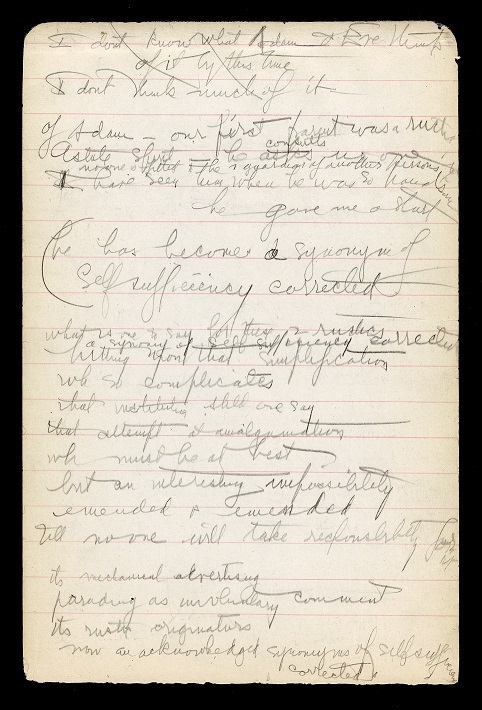 I dont know what Adam & Eve think
of it by this time
I dont think much of it
of Adam – our first parent was a rustic
consults
no one is fitted to be the guardian of another persons
I have seen him when he was so
he gave me a start
(he has become a synonym of
Self sufficiency corrected
what is one to say for these 2 rustics
a synonym of self sufficiency corrected
hitting upon that simplification
wh so complicates
that institution shall one say
that attempt at amalgamation
wh must be at best
but an interesting impossibility
emended &
till no one will take responsibility for it
its mechanical advertising
parading as involuntary comment
its rustic originators
now an acknowledged synonyms of self sufficiency
corrected